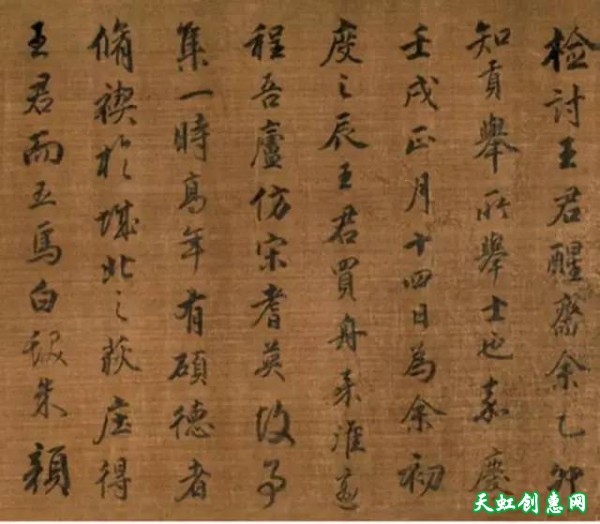 檢討王君醒齋余乙卯
知貢舉所舉士也嘉慶
壬戌正月十四日為余初
度之辰王君買舟来淮適
程吾廬仿宋耆英故事
集一時高年有碩德者
脩禊於城北之荻庄得
王君而五焉白髮朱顏
天虹创惠网